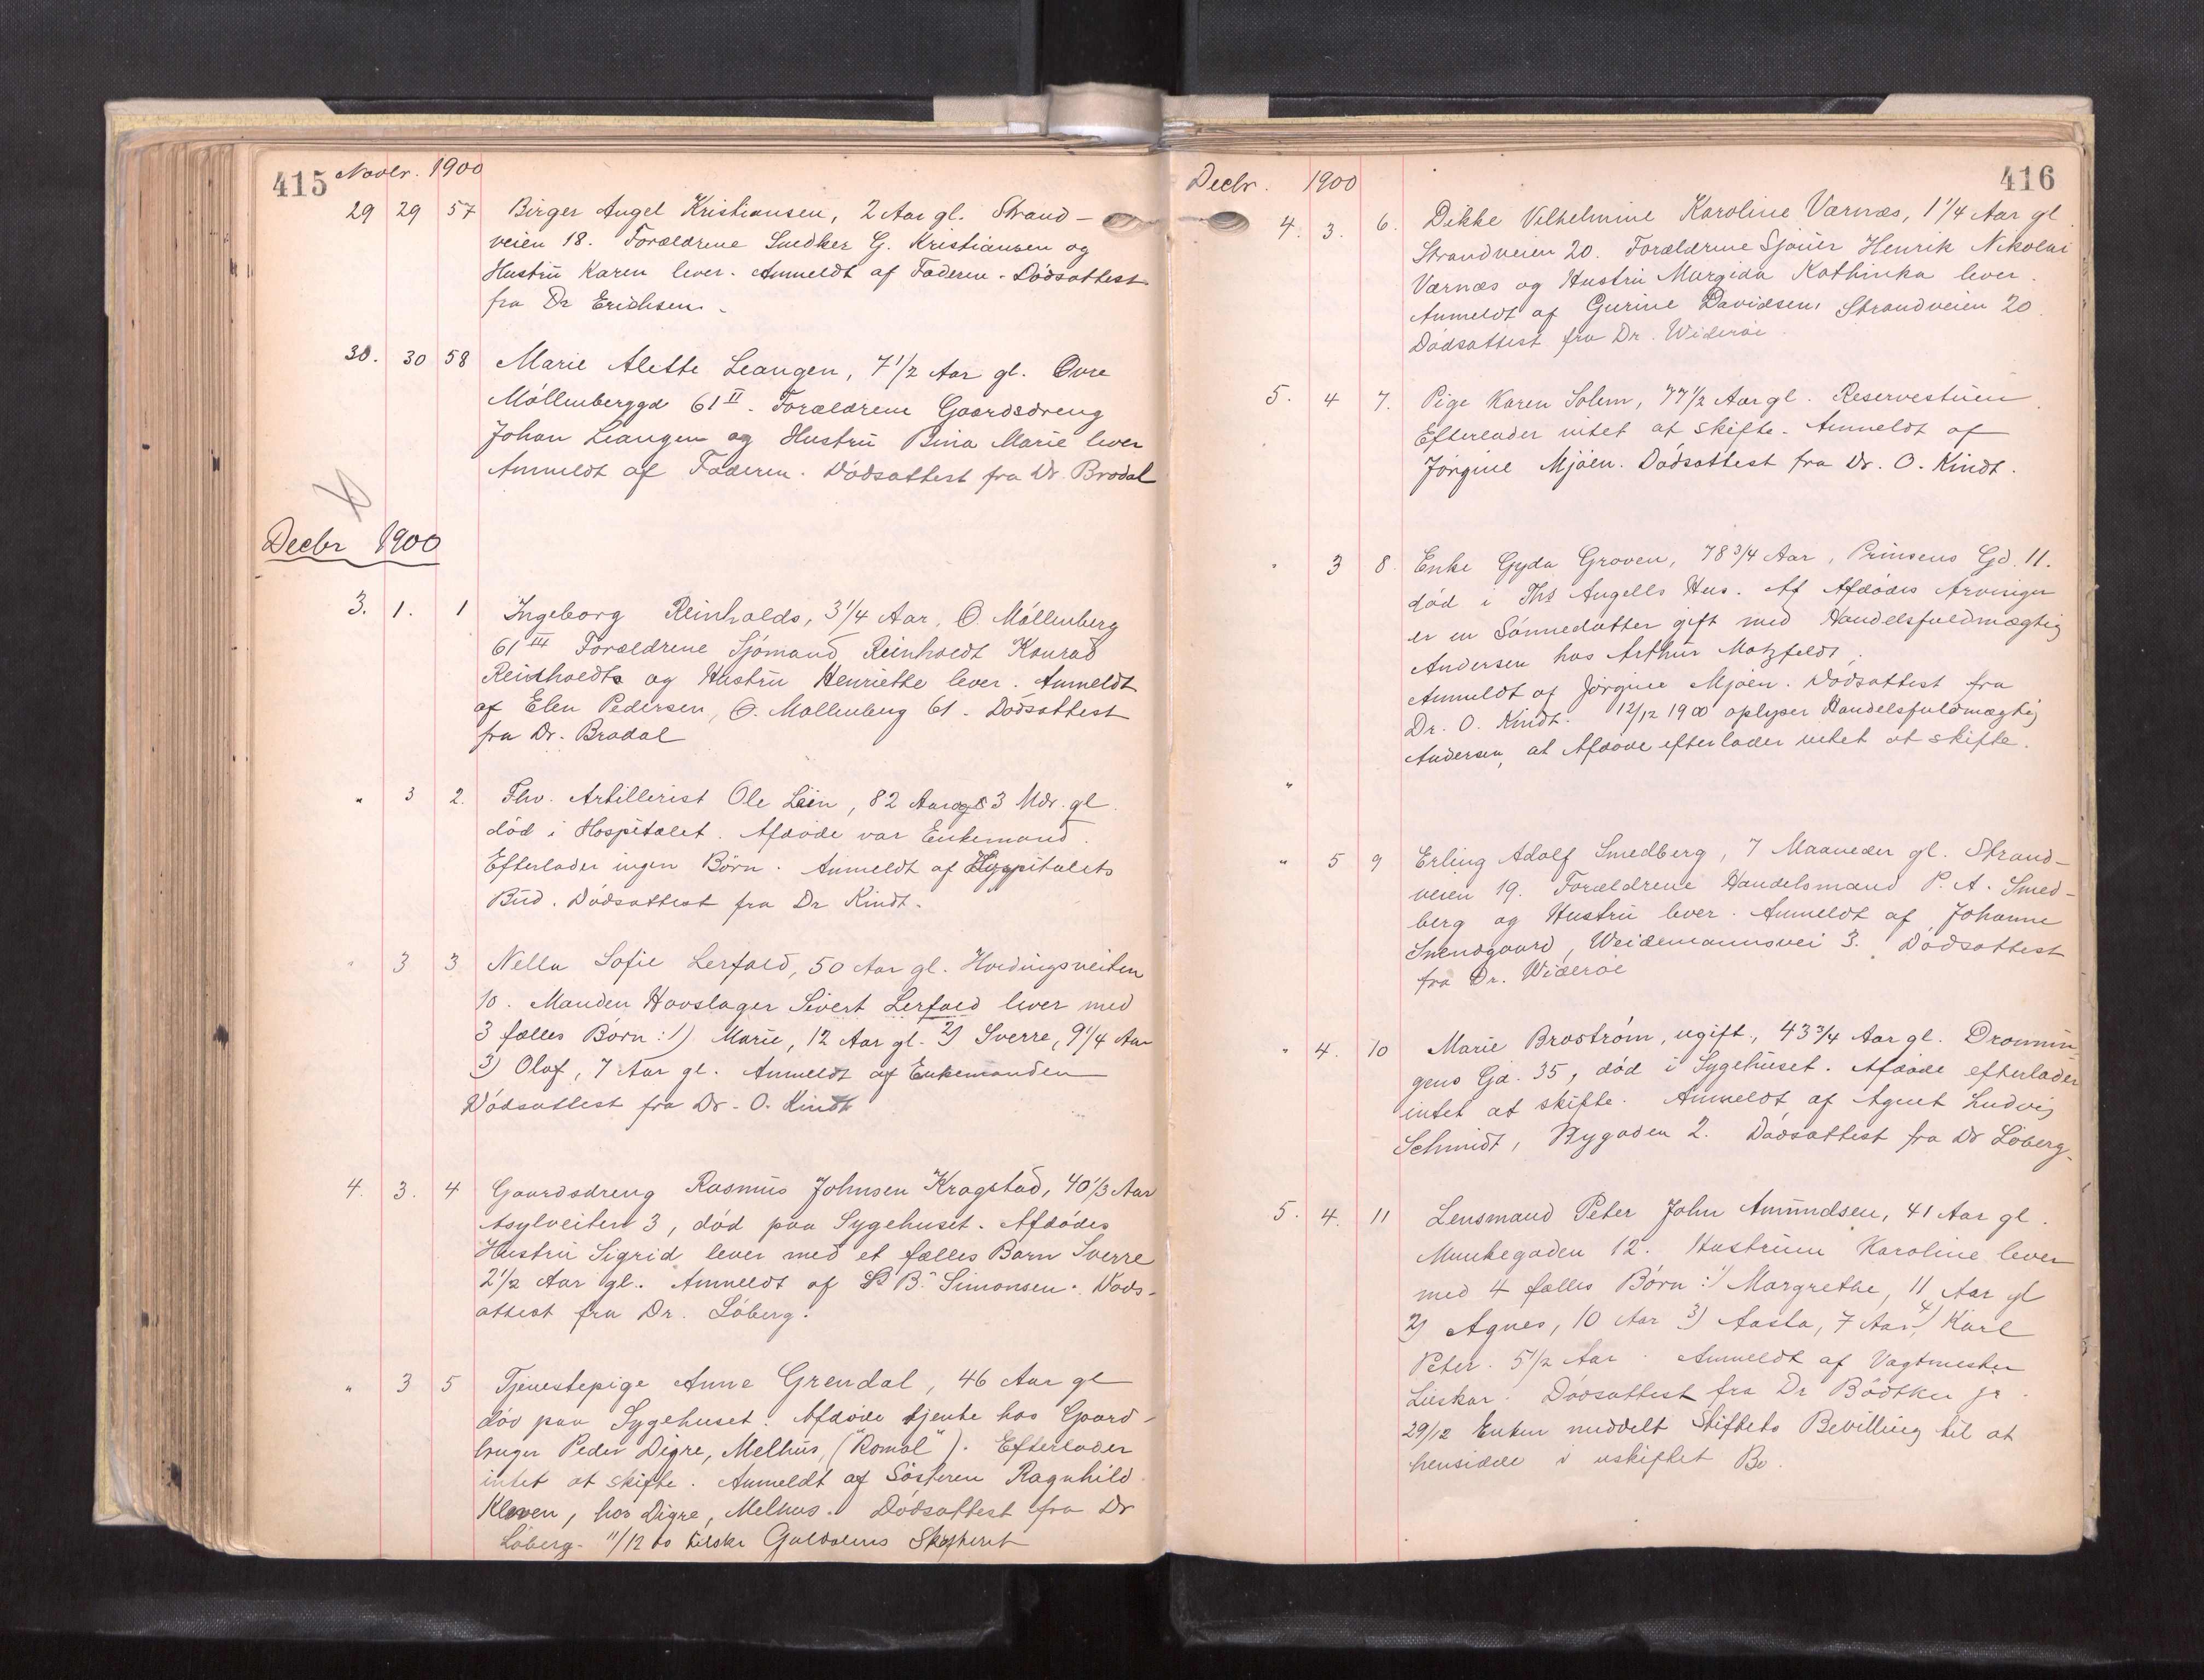 415 Novbr. 1900
29 29 57 Birger Angel Kristiansen, 2 Aar gl. Strand-
veien 18. Forældrene Snedker G. Kristiansen og
Hustru Karen lever. Anmeldt af Faderen. Dödsattest
fra Dr Erichsen.
30. 30 58 Marie Alette Leangen, 7 1/2 Aar gl. Övre
Möllenberggd 61 II. Forældrene Gaardsdreng
Johan Leangen og Hustru Bina Marie lever
Anmeldt af Faderen. Dödsattest fra Dr. Brodal
Decbr 1900
3. 1. 1 Ingeborg Reinholds, 3 1/4 Aar, Ö. Möllenberg
61 III Forældrene Sjömand Reinholdt Konrad
Reinholdts og Hustru Henriette lever. Anmeldt
af Elen Pedersen, Ö. Mollenberg 61. Dödsattest
fra Dr. Brodal
" 3 2. Fhv. Artillerist Ole Lien, 82 Aar og 3 Mdr. gl.
död i Hospitalet. Afdöde var Enkemand.
Efterlader ingen Börn. Anmeldt af Hospitalets
Bud. Dödsattest fra Dr Kindt.
" 3 3 Nella Sofie Lerfald, 50 Aar gl. Hvedingsveiten
10. Manden Hovslager Sivert Lerfald lever med
3 fælles Börn: 1) Marie, 12 Aar gl. 2) Sverre, 9 1/4 Aar
3) Olaf, 7 Aar gl. Anmeldt af Enkemanden
Dödsattest fra Dr. O. Kindt
4. 3. 4 Gaardsdreng Rasmus Johnsen Kragstad, 40 1/3 Aar
Asylveiten 3, död paa Sygehuset. Afdödes
Hustru Sigrid lever med et fælles Barn Sverre
2 1/2 Aar gl. Anmeldt af B. Simonsen. Döds-
attest fra Dr. Löberg.
" 3 5 Tjenestepige Anne Grendal, 46 Aar gl
död paa Sygehuset. Afdöde tjente hos Gaard-
bruger Peder Digre, Melhus, ("Romol"). Efterlader
intet at skifte. Anmeldt af Sösteren Ragnhild
Kleven, hos Digre, Melhus. Dödsattest fra Dr
Löberg. 11/12 00 tilskr Guldalens Skifteret
Decbr. 1900 416
4. 3. 6. Dikke Vilhelmine Karoline Værnæs, 1 1/4 Aar gl.
Strandveien 20. Forældrene Sjöuer Henrik Nikolai
Værnæs og Hustru Margida Kathinka lever.
Anmeldt af Gurine Davidsen, Strandveien 20.
Dödsattest fra Dr. Wideröe.
5. 4 7. Pige Karen Solem, 77 1/2 Aar gl. Reservestuen.
Efterlader intet at skifte. Anmeldt af
Jörgine Mjöen. Dödsattest fra Dr. O. Kindt.
" 3 8 Enke Gyda Groven, 78 3/4 Aar, Prinsens Gd. 11.
död i Ths Angells Hus. Af Afdödes Arvinger
er en Sönnedatter gift med Handelsfuldmægtig
Andersen hos Arthur Motzfeldt;
Anmeldt af Jörgine Mjöen. Dödsattest fra
Dr. O. Kindt. 12/12 1900 oplyser Handelsfuldmægtig
Andersen, at Afdöde efterlader intet at skifte.
"
" 5 9 Erling Adolf Smedberg, 7 Maaneder gl. Strand-
veien 19. Forældrene Handelsmand P. A. Smed-
berg og Hustru lever. Anmeldt af Johanne
Svendgaard, Weidemannsvei 3. Dödsattest
fra Dr. Wideröe
" 4. 10 Marie Broström, ugift, 43 3/4 Aar gl. Dronnin-
gens Gd. 35, död i Sygehuset. Afdöde efterlader
intet at skifte. Anmeldt af Agent Ludvig
Schmidt, Nygaden 2. Dödsattest fra Dr Löberg.
5. 4. 11 Lensmand Peter John Amundsen, 41 Aar gl.
Munkegaden 12. Hustruen Karoline lever
med 4 fælles Börn: 1) Margrethe, 11 Aar gl
2) Agnes, 10 Aar 3) Aasta, 7 Aar, 4) Karl
Peter. 5 1/2 Aar. Anmeldt af Vagtmester
Lieskar. Dödsattest fra Dr Bödtker jr.
29/12 Enken meddelt Skiftets Bevilling til at
hensidde i uskiftet Bo.